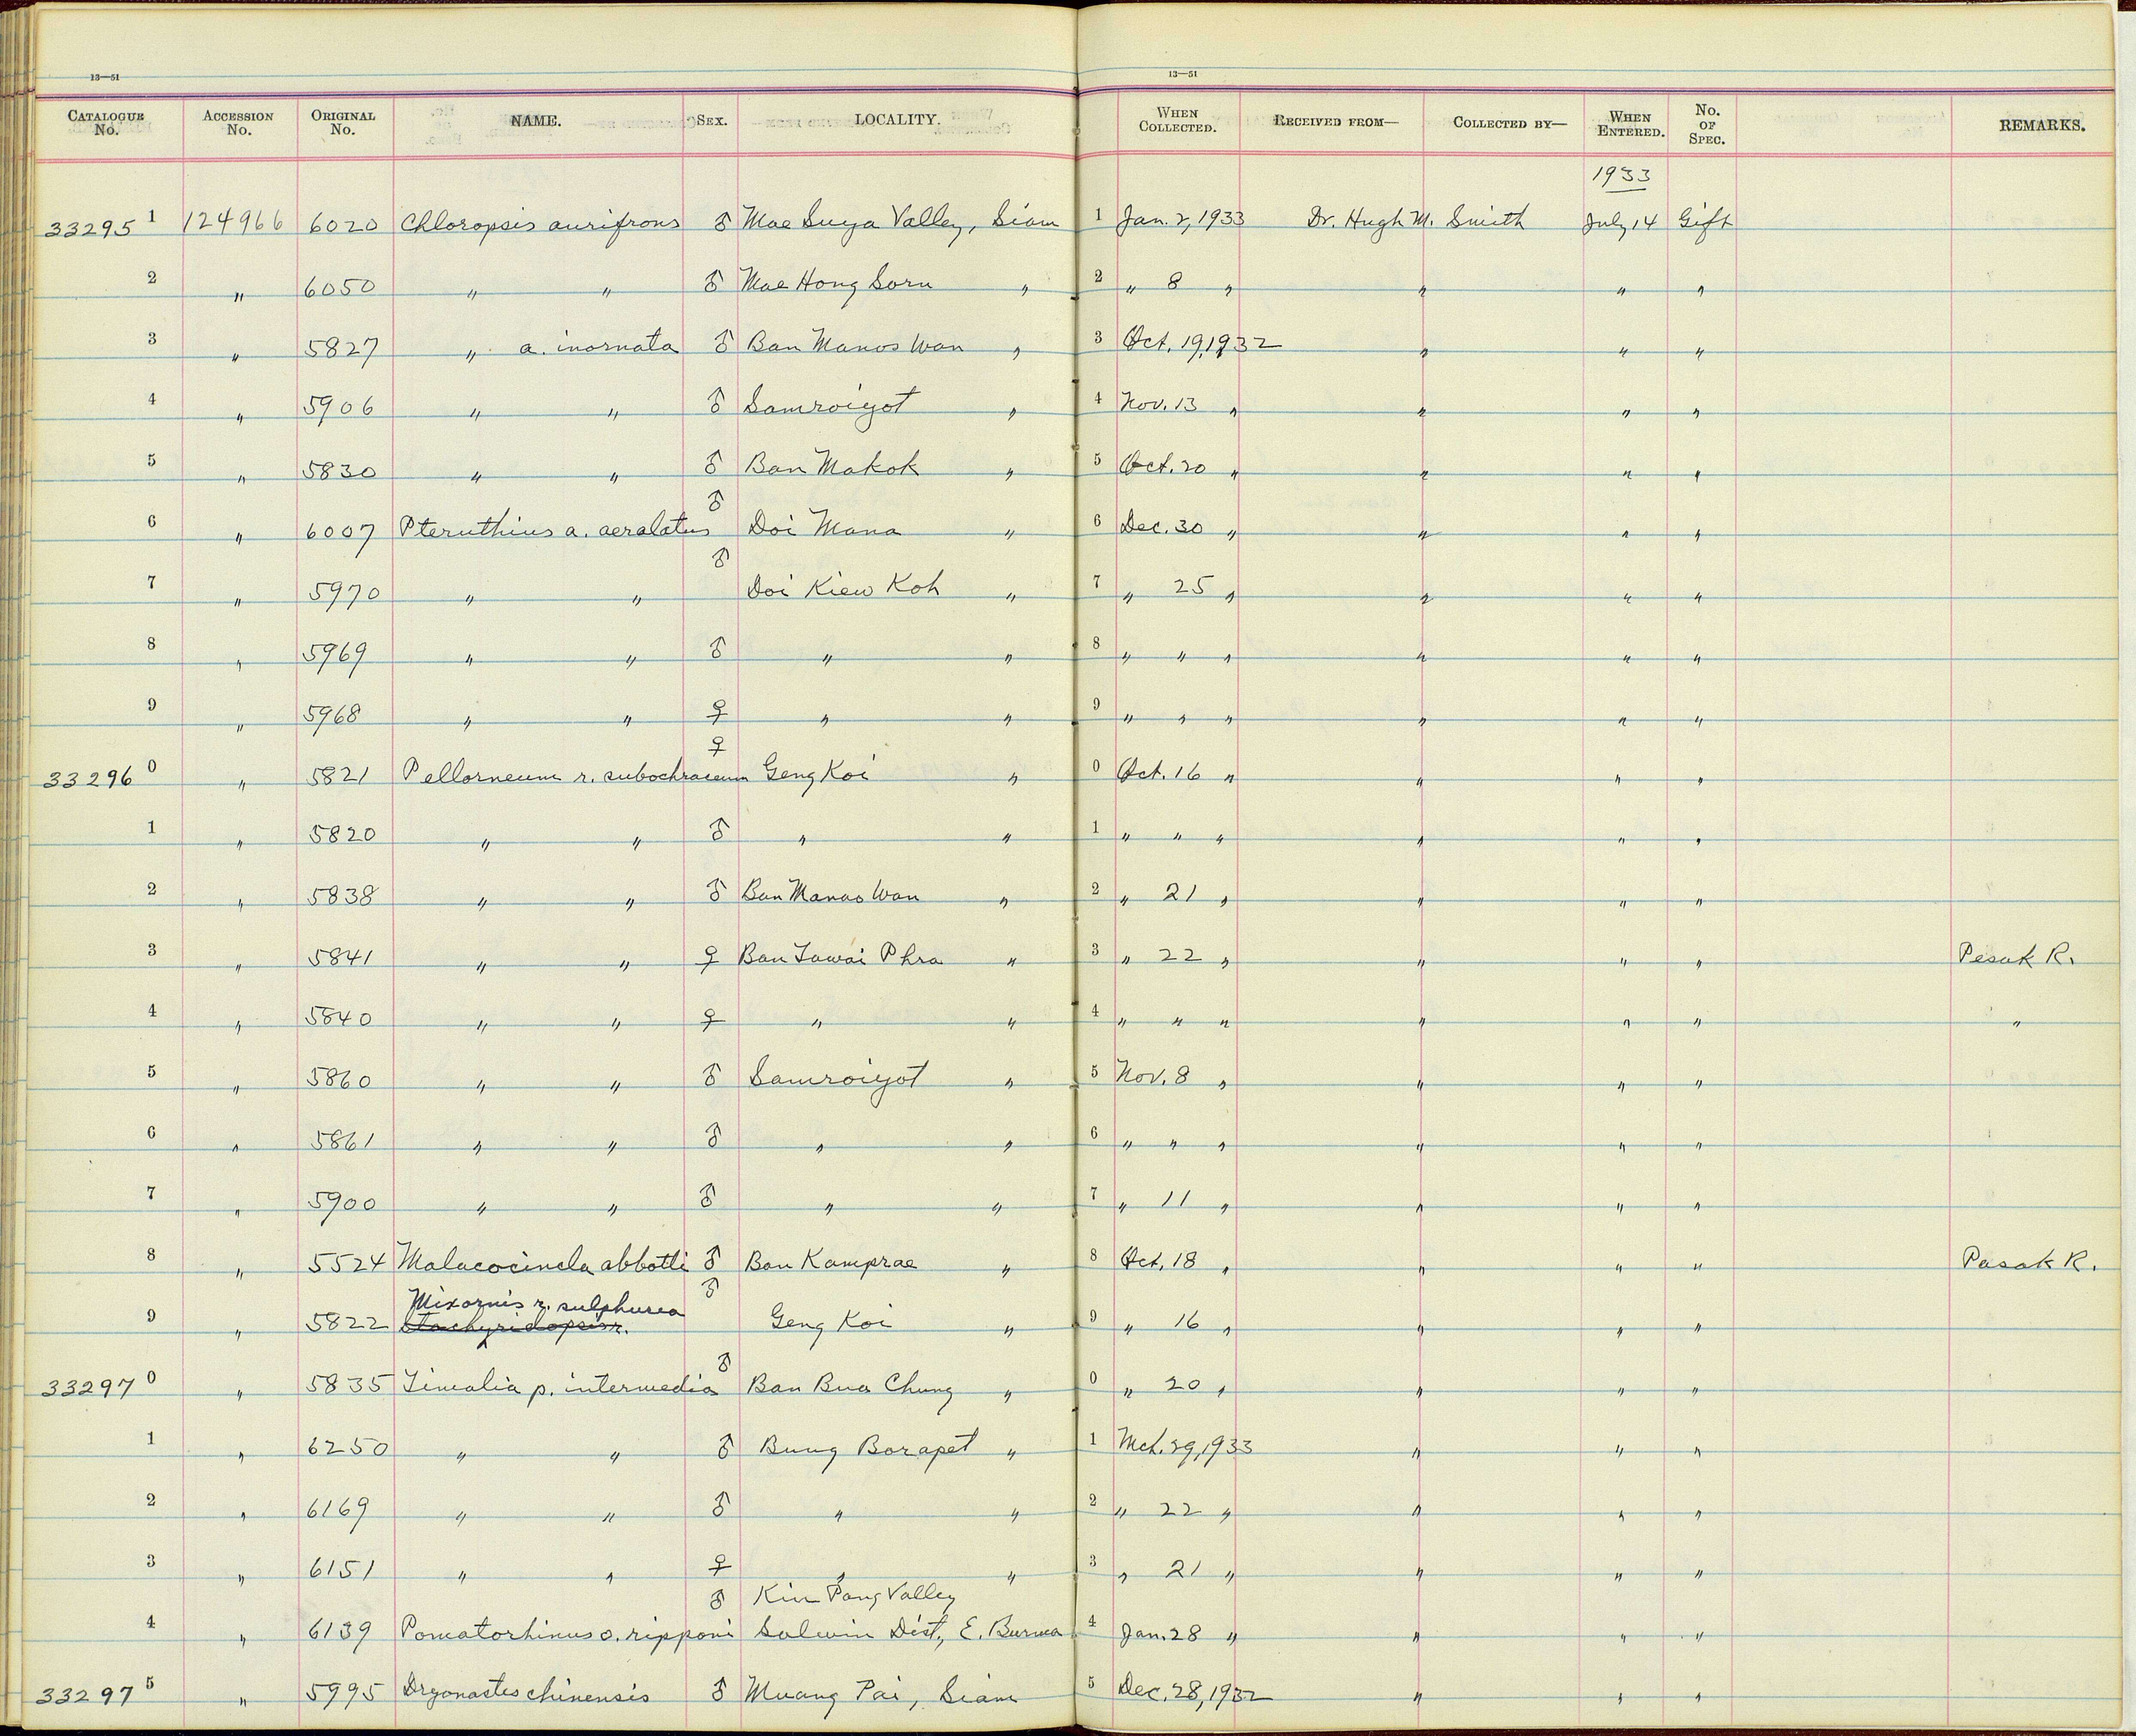 13—51 13—51
CATALOGUE No. ACCESSION No. ORIGINAL No. NAME. SEX. LOCALITY. WHEN COLLECTED. RECEIVED FROM— COLLECTED BY— WHEN ENTERED. No. OF SPEC. REMARKS.
1933
33295 1 124966 6020 Chloropsis aurifrons ♂ Mae Suya Valley, Siam 1 Jan. 2, 1933 Dr. Hugh M. Smith July 14 Gift
2 " 6050 " " ♂ Mae Hong Sorn " 2 " 8 " " " "
3 " 5827 " a. inornata ♂ Ban Manos Wan " 3 Oct. 19, 1932 " " "
4 " 5906 " " ♂ Samroiyot " 4 Nov. 13 " " " "
5 " 5830 " " ♂ Ban Makok " 5 Oct. 20 " " " "
6 " 6007 Pteruthius a. aeralatus ♂ Doi Mana " 6 Dec. 30 " " " "
7 " 5970 " " ♂ Doi Kiew Koh " 7 " 25 " " " "
8 " 5969 " " ♂ " " 8 " " " " " "
9 " 5968 " " ♀ " " 9 " " " " " "
33296 0 " 5821 Pellorneum r. subochraceum ♀ Geng Koi " 0 Oct. 16 " " " "
1 " 5820 " " ♂ " " 1 " " " " " "
2 " 5838 " " ♂ Ban Manao Wan " 2 " 21 " " " "
3 " 5841 " " ♀ Ban Tawai Phra " 3 " 22 " " " " Pesak R.
4 " 5840 " " ♀ " " 4 " " " " " " "
5 " 5860 " " ♂ Samroiyot " 5 Nov. 8 " " " "
6 " 5861 " " ♂ " " 6 " " " " " "
7 " 5900 " " ♂ " " 7 " 11 " " " "
8 " 5524 Malacocincla abbotti ♂ Ban Kamprae " 8 Oct. 18 " " " " Pasak R.
Mixornis r. sulphurea ♂
9 " 5822 Stachyridopsis r. Geng Koi " 9 " 16 " " " "
33297 0 " 5835 Timalia p. intermedia ♂ Ban Bua Chung " 0 " 20 " " " "
1 " 6250 " " ♂ Bung Borapet " 1 Mch. 29, 1933 " " "
2 " 6169 " " ♂ " " 2 " 22 " " " "
3 " 6151 " " ♀ " " 3 " 21 " " " "
♂ Kin Pang Valley
4 " 6139 Pomatorhinus o. ripponi Salwin Dist., E. Burma 4 Jan. 28 " " " "
33297 5 " 5995 Dryonastes chinensis ♂ Muang Pai, Siam 5 Dec. 28, 1932 " " "